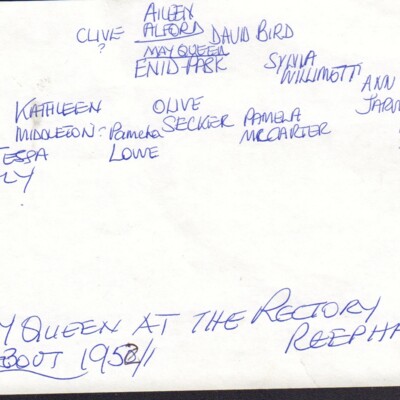 AILEEN
CLIVE ALFORD DAVID BIRD
? MAY QUEEN
ENID PARK SYLVIA
WILLIMOTT
ANN
JARV
KATHLEEN OLIVE PAMELA
MIDDLETON Pamela SECKER MCCARTER
TESSA LOWE
LY
Y QUEEN AT THE RECTORY
REEPHA
ABOUT 1950/1